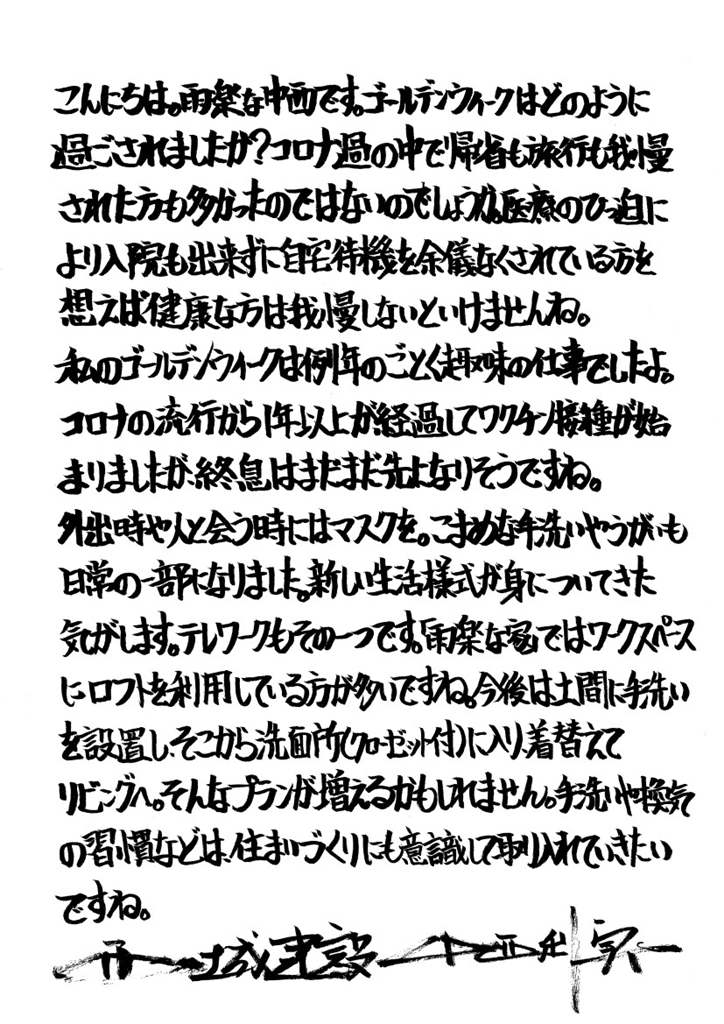 こんにちは。雨楽な中西です。ゴールデンウィークはどのように
過ごされましたか?コロナ過の中で帰省も旅行も我慢
された方も多かったのではないのでしょうか。医療のひっ迫に
より入院も出来ずに自宅待機を余儀なくされている方を
想えば健康な方は我慢しないといけませんね。
私のゴールデンウィークは例年のごとく趣味の仕事でしたよ。
コロナの流行から1年以上が経過してワクチン接種が始
まりましたが、終息はまだまだ先になりそうですね。
外出時や人と会う時にはマスクを。こまめな手洗いやうがいも
日常の一部になりました。新しい生活様式が身についてきた
気がします。テレワークもその一つです。「雨楽な家」ではワークスペース
にロフトを利用している方が多いですね。今後は土間に手洗い
を設置し、そこから洗面所(クローゼット付)に入り、着替えて
リビングへ。そんなプランが増えるかもしれません。手洗いや換気
の習慣などは、住まいづくりにも意識して取り入れていきたい
ですね。
城建設 中西